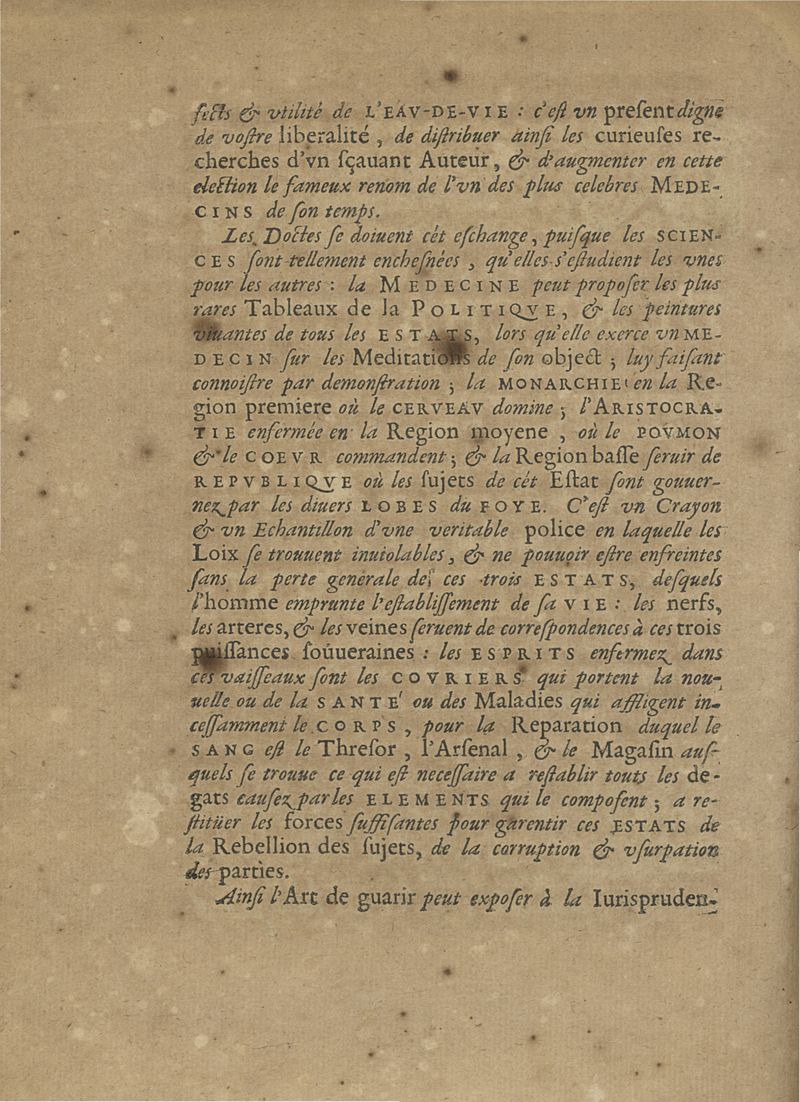 fects & vtilité de L'EAV-DE-VIE : c'eſt vn preſent digne
de voſtre liberalité , de diſtribuer ainſi les curieuſes re-
cherches d'vn ſçauant Auteur, & d'augmenter en cette
election le fameux renom de l'vn des plus celebres MEDE-
CINS de ſon temps.
Les Doctes ſe doiuent cét eſchange, puiſque les SCIEN-
CES ſont tellement encheſnées , qu'elles s'eſtudient les vnes
pour les autres : la MEDECINE peut propoſer les plus
rares Tableaux de la POLITIQVE, & les peintures
viuantes de tous les ESTATS, lors qu'elle exerce vn ME-
DECIN ſur les Meditations de ſon object ; luy faiſant
connoiſtre par demonſtration ; la MONARCHIE en la Re-
gion premiere où le CERVEAV domine ; l'ARISTOCRA-
TIE enfermée en la Region moyene , où le POVMON
& le COEVR commandent ; & la Region baſſe ſeruir de
REPVBLIQVE où les ſujets de cét Eſtat ſont gouuer-
nez par les diuers LOBES du FOYE. C'eſt vn Crayon
& vn Echantillon d'vne veritable police en laquelle les
Loix ſe trouuent inuiolables, & ne pouuoir eſtre enfreintes
ſans la perte generale de ces trois ESTATS, deſquels
l'homme emprunte l'eſtabliſſement de ſa VIE : les nerfs,
les arteres, & les veines ſeruent de correſpondences à ces trois
puiſſances ſoúueraines : les ESPRITS enfermez dans
ces vaiſſeaux ſont les COVRIERS qui portent la nou-
uelle ou de la SANTE' ou des Maladies qui affligent in-
ceſſamment le CORPS , pour la Reparation duquel le
SANG eſt le Threſor , l'Arſenal , & le Magaſin auſ-
quels ſe trouue ce qui eſt neceſſaire a reſtablir touts les de-
gats cauſez par les ELEMENTS qui le compoſent ; a re-
ſtitüer les forces ſuffiſantes pour garentir ces ESTATS de
la Rebellion des ſujets, de la corruption & vſurpation
des parties.
Ainſi l'Art de guarir peut expoſer à la Iurispruden-